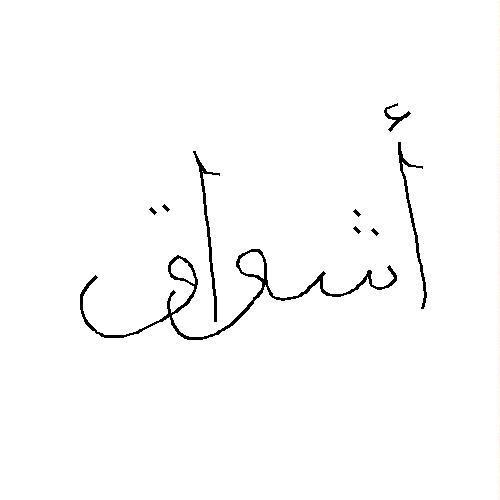 أشواق